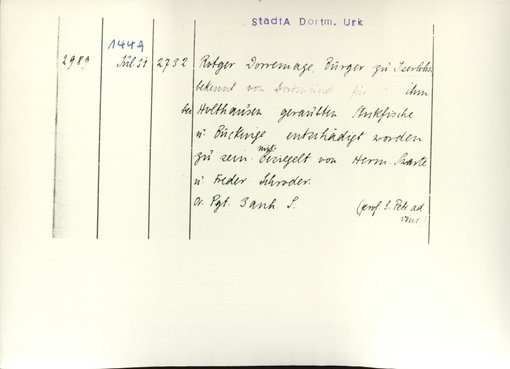 StadtA Dortm. Urk
1449
2989 Jul 31 2732 Rotger Dorremage, Bürger zu Iserlohn
bekennt von Dortmund für ihm
bei Holthausen geraubten Stukfische
u Bückinge entschädigt worden
zu sein. mit Besiegelt von Herm. Swarte
u. Freder. Schroder.
Or. Pgt. 3 anh S.